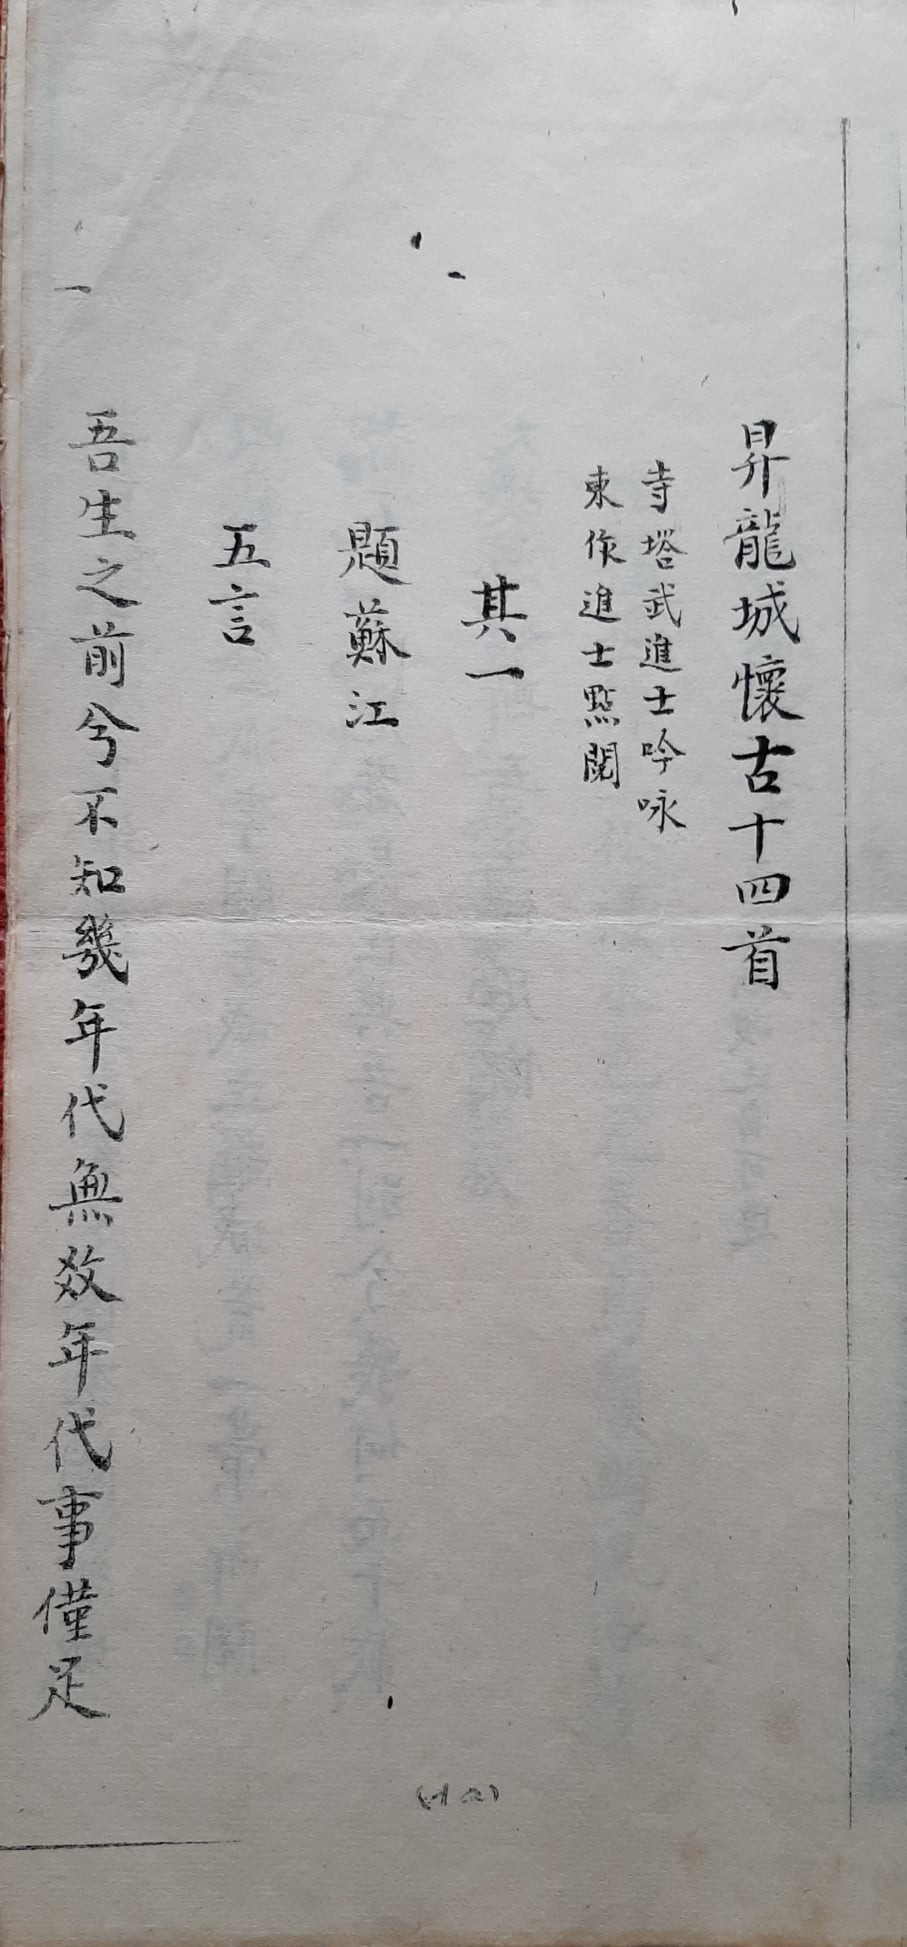 昇龍城懷古十四首
寺塔武進士吟咏
東作進士點閱
其一
題蘇江
五言
一
吾生之前兮不知幾年代無效年代事僅足